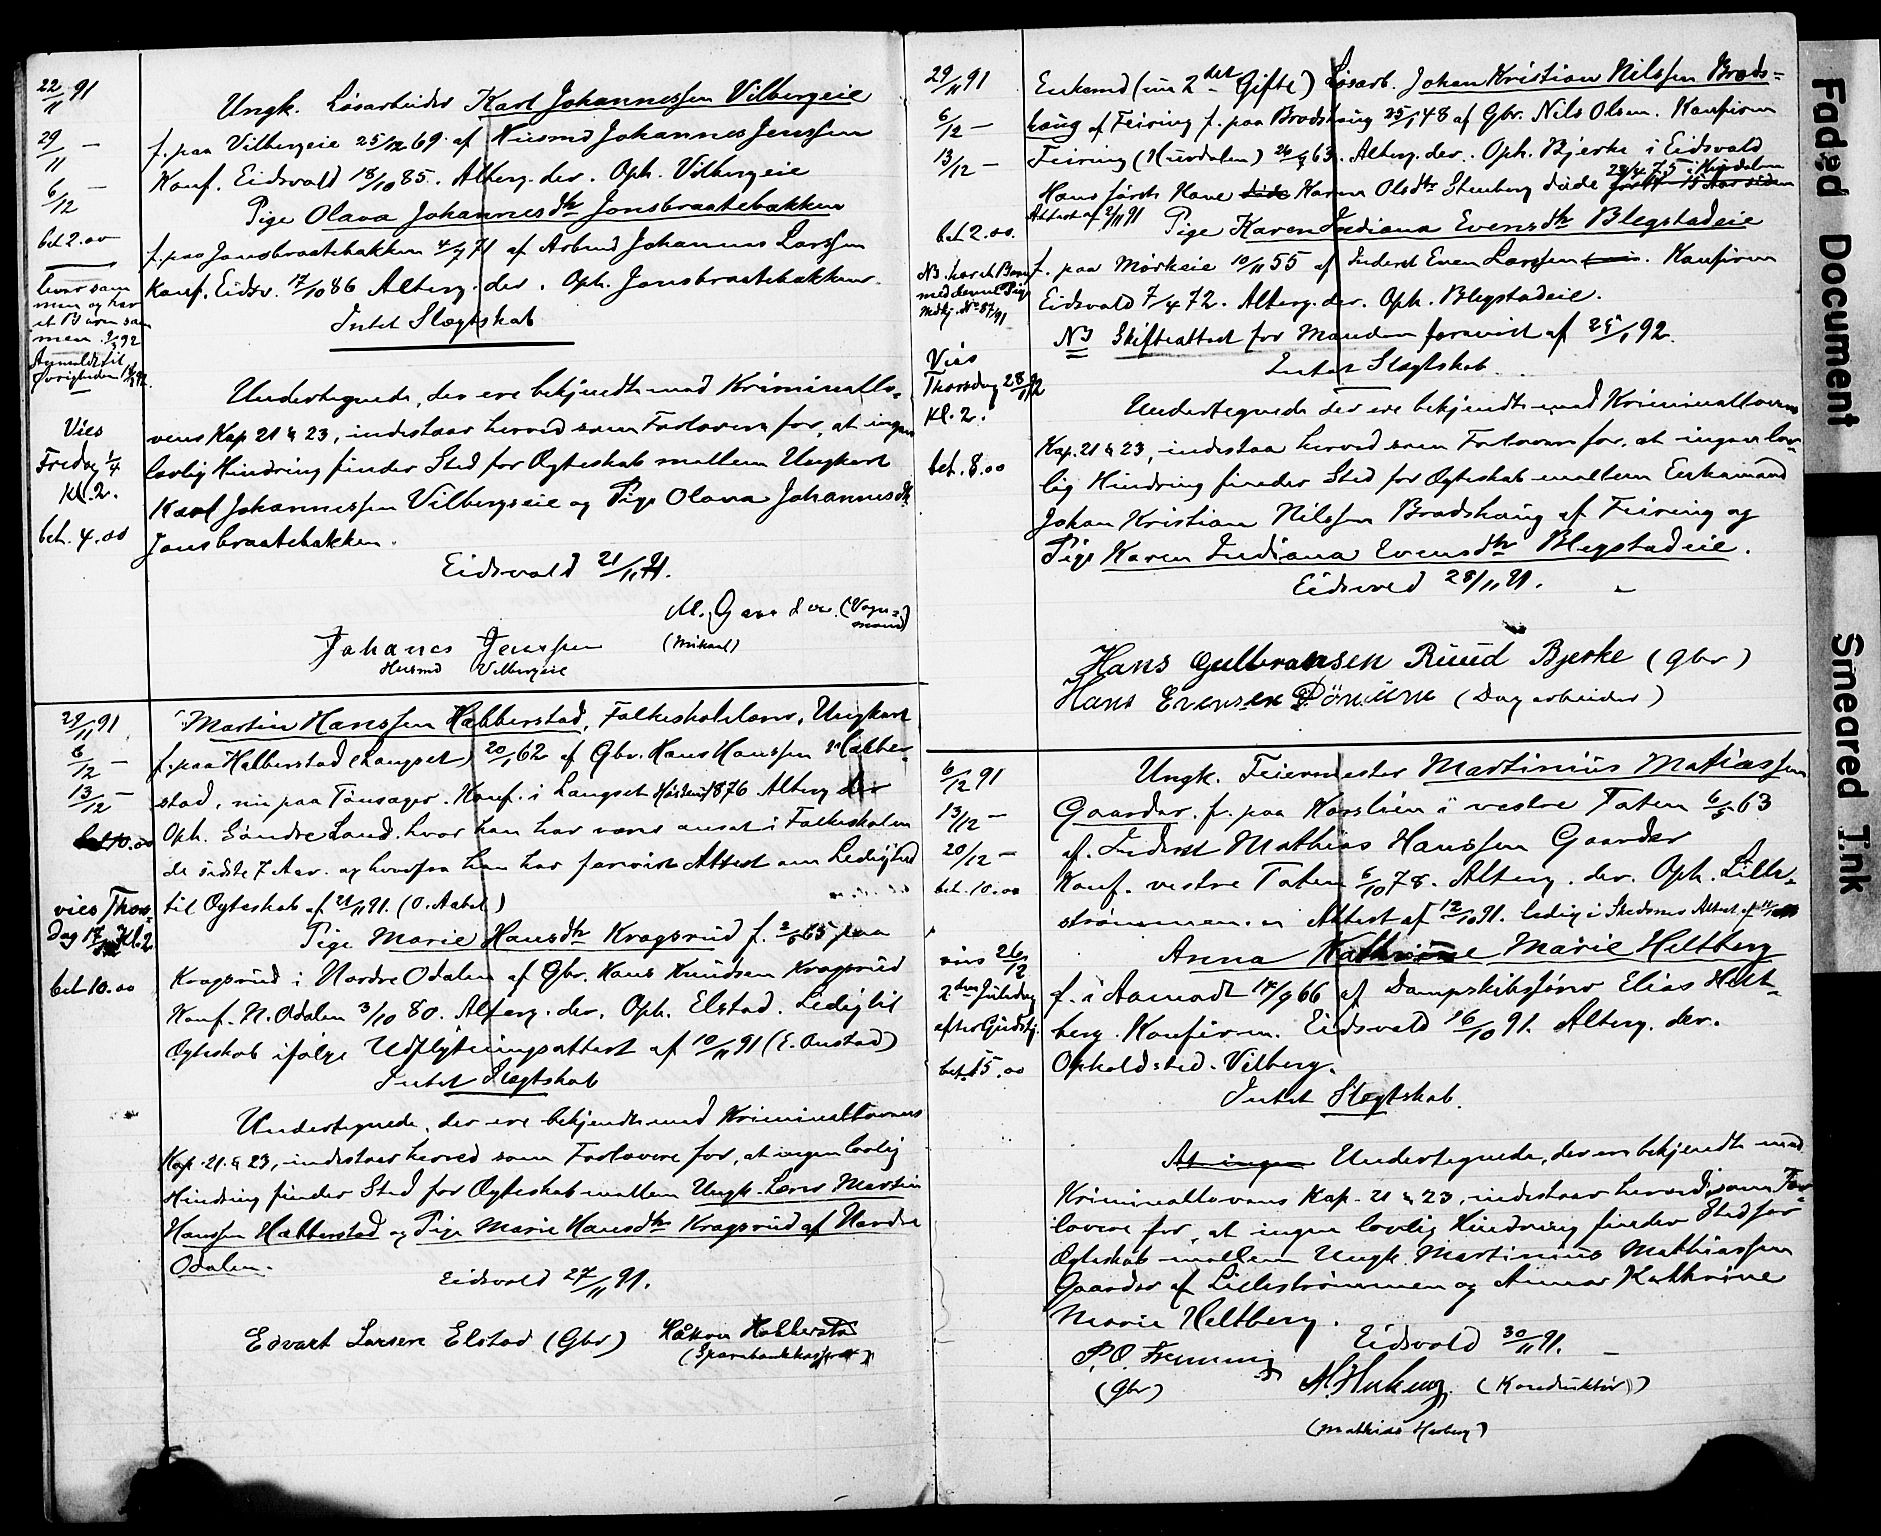 22/11 91
29/11 —
6/12 —
bet 2.00
bor sam
men og har
et Barn sam
men. 92
Anmeldt til
Øvrigheden
Vies
Fredag 1/4
Kl. 2.
bet. 4.00
Ungk. Løsarbeider Karl Johannessen Vilbergeie
f. paa Vilbergeie 25/12 69 af Husmd Johannes Jenssen
Konf. Eidsvold 18/10 85. Alterg. der. Oph. Vilbergeie
Pige Olava Johannesdtr Jonsbraatebakken
f. paa Jonsbraatebakken 4/7 71 af Arbmd Johannes Larssen
Konf. Eidsv. 17/10 86 Alterg. der. Oph. Jonsbraatebakken.
Intet Slægtskab
Undertegnede, der ere bekjendte med Kriminallo-
vens Kap 21 & 23, indestaar herved som Forlovere for, at ingen
lovlig Hindring finder Sted for Ægteskab mellem Ungkarl
Karl Johannessen Vilbergseie og Pige Olava Johannesdtr
Jonsbraatebakken.
Eidsvold 21/11 91.
M. Gaarder. (Vogn-
mand)
Johanes Jenssen (Mikael)
Husmd Vilbergeie
29/11 91
6/12 —
13/12 —
bet 10.00
vies Thors-
dag 17/12 Kl. 2
bet 10.00
Martin Hanssen Habberstad, Folkeskolelærer, Ungkarl
f. paa Habberstad (Langset) 20/1 62 af Gbr. Hans Hanssen Habber-
stad, nu paa Tønsager. Konf. i Langset Høsten 1876 Alterg der
Oph. Søndre Land. hvor han har været ansat i Folkeskolen
de sidste 7 Aar. og hvorfra han har forevist Attest om Ledighed
til Ægteskab af 21/11 91. (O. Aabel)
Pige Marie Hansdtr Kragsrud f. 2/6 65 paa
Kragsrud i Nordre Odalen af Gbr. Hans Knudsen Kragsrud
Konf. N. Odalen 3/10 80. Alterg. der. Oph. Elstad. Ledig til
Ægteskab ifølge Udflytningsattest af 10/11 91 (E. Onstad)
Intet Slægtskab
Undertegnede, der ere bekjendte med Kriminallovens
Kap. 21. & 23, indestaar herved som Forlovere for, at ingen lovlig
Hindring finder Sted for Ægteskab mellem Ungk. Lærer Martin
Hanssen Habberstad og Pige Marie Hansdtr Kragsrud af Nordre
Odalen.
Eidsvold 27/11 91.
Edvart Larsen Elstad (Gbr) Håkon Habberstad
(Sparebankkasserer)
29/11 91
6/12 —
13/12 —
bet 2.00.
NB. har et Barn
med denne Pige
Mdkj. No 87/91
Vies
Thorsdag 28/1 92
Kl. 2.
bet. 8.00
Enkemd (nu 2det Gifte) Løsarb. Johan Kristian Nilssen Brods-
haug af Feiring f. paa Brodshaug 25/1 48 af Gbr. Nils Olsen. Konfirm
Feiring (Hurdalen) 63. Alterg. der. Oph. Bjerke i Eidsvold
Hans første Kone døde Karen Olsdtr Stenberg døde 75 i Hurdalen
for 15 Aar siden
Attest af 2/11 91 Pige Karen Indiana Evensdtr Blegstadeie
f. paa Mørkeie 10/11 55 af Inderst Even Larssen. Konfirm
Eidsvold 7/4 72. Alterg. der. Oph. Blegstadeie.
NB Skifteattest for Manden forevist af 25/1 92.
Intet Slægtskab.
Undertegnede der ere bekjendte med Kriminallovens
Kap. 21 & 23, indestaa herved som Forlovere for, at ingen lov-
lig Hindring finder Sted for Ægteskab mellem Enkemand
Johan Kristian Nilssen Brodshaug af Feiring og
Pige Karen Indiana Evensdtr Blegstadeie.
Eidsvold 28/11 91.
Hans Gulbransen Ruud Bjerke (gbr)
Hans Evensen (Dagarbeider)
6/12 91
13/12 —
20/12 —
bet. 10.00
vies 26/12
2den Juledag
efter Gudstj.
bet 15.00
Ungk. Feiermester Martinius Matiassen
Gaarder. f. paa Korslien i vestre Toten 6/5 63
af. Inderst Mathias Hanssen Gaarder
Konf. vestre Toten 6/10 78. Alterg. der. Oph. Lille-
strømmen. Attest af 12/10 91. ledig i Skedsmo Attest af
Anna Kathrine Marie Heltberg
f. i Aamodt 18/9 66 af Dampskibsfører Elias Helt-
berg. Konfirm. Eidsvold 16/10 91. Alterg. der.
Opholdsted. Vilberg.
Intet Slægtskab.
At ingen Undertegnede, der ere bekjendte med
Kriminallovens Kap. 21 & 23, indestaar herved, som For-
lovere for, at ingen lovlig Hindring finder Sted for
Ægteskab mellem Ungk. Martinius Mathiassen
Gaarder af Lillestrømmen og Anna Kathrine
Marie Heltberg.
Eidsvold 30/11 91.
P. O. Fremming
(Gbr) (Konduktør)
(Mathias Herberg)
Faded Document
Smeared Ink